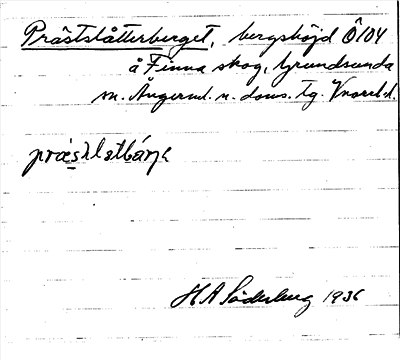 Prästslåtterberget, bergshöjd Ö 104
å Finna skog, Grundsunda
sn. Ångerml. n. doms. tg. Vnorrl.
H A Söderberg 1936